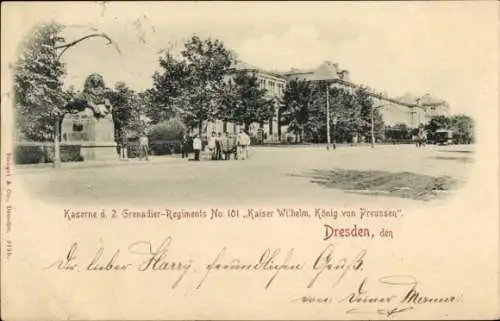 Kaserne d. 2. Grenadier-Regiments No 101 „Kaiser Wilhelm, König von Preussen".
Dresden, den
Dir lieber Harry freundlichen Gruß
von Deiner
Stengel & Co., Dresden